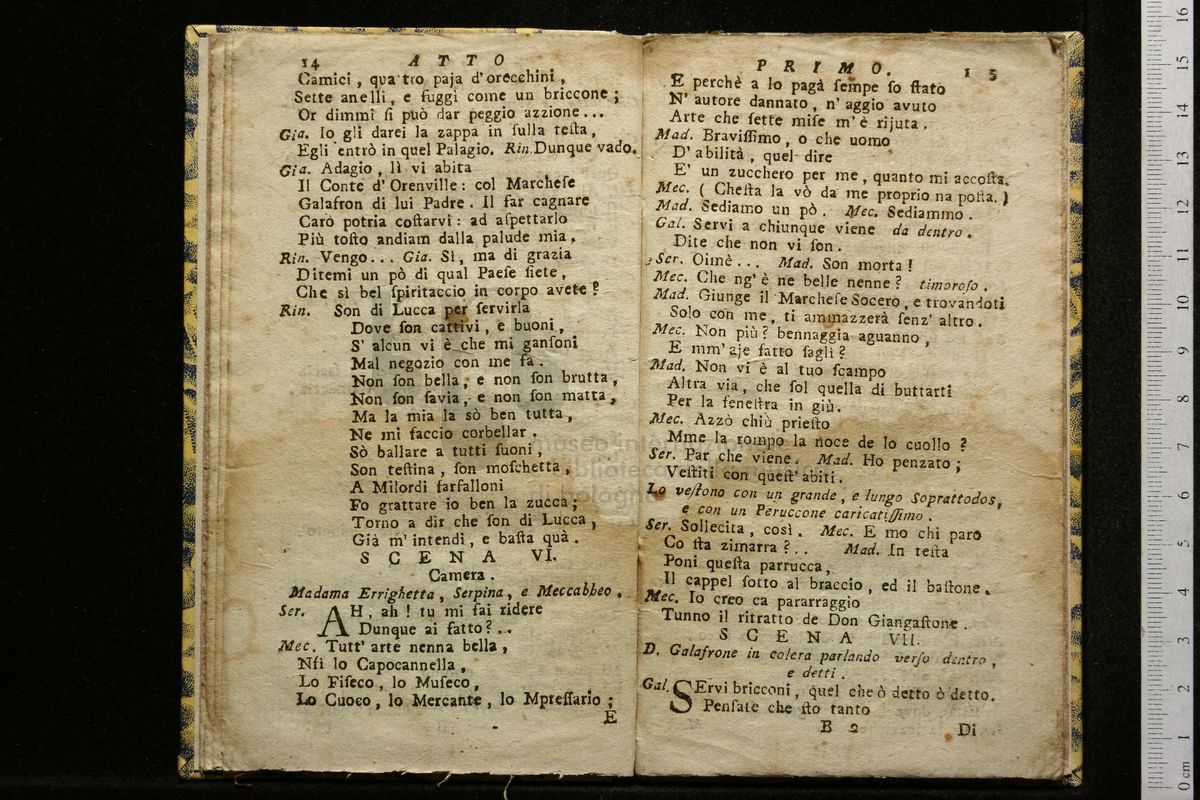 14 ATTO
Camici, quattro paja d'orecchini,
Sette anelli, e fuggì come un briccone;
Or dimmi ſi può dar peggio azzione...
Gia. Io gli darei la zappa in ſulla teſta,
Egli entrò in quel Palagio. Rin. Dunque vado.
Gia. Adagio, lì vi abita
Il Conte d'Orenville: col Marcheſe
Galafron di lui Padre. Il far cagnare
Carò potria coſtarvi: ad aſpettarlo
Più toſto andiam dalla palude mia,
Rin. Vengo... Gia. Sì, ma di grazia
Ditemi un pò di qual Paeſe ſiete,
Che sì bel ſpiritaccio in corpo avete?
Rin. Son di Lucca per ſervirla
Dove ſon cattivi, e buoni,
S'alcun vi è che mi ganſoni
Mal negozio con me fa.
Non ſon bella, e non ſon brutta,
Non ſon ſavia, e non ſon matta,
Ma la mia la sò ben tutta,
Ne mi faccio corbellar.
Sò ballare a tutti ſuoni,
Son teſtina, ſon moſchetta,
A Milordi farfalloni
Fo grattare io ben la zucca;
Torno a dir che ſon di Lucca,
Già m'intendi, e baſta quà.
SCENA VI.
Camera.
Madama Errighetta, Serpina, e Meccabbeo.
Ser. AH, ah! tu mi fai ridere
Dunque ai fatto?..
Mec. Tutt'arte nenna bella,
Nfi lo Capocannella,
Lo Fiſeco, lo Muſeco,
Lo Cuoco, lo Mercante, lo Mpreſſario;
E
PRIMO. 15
E perchè a lo pagà ſempe ſo ſtato
N'autore dannato, n'aggio avuto
Arte che ſette miſe m'è rijuta.
Mad. Braviſſimo, o che uomo
D'abilità, quel dire
E' un zucchero per me, quanto mi accoſta.
Mec. (Cheſta la vò da me proprio na poſta.)
Mad. Sediamo un pò. Mec. Sediammo.
Gal. Servi a chiunque viene da dentro.
Dite che non vi ſon.
Ser. Oimè... Mad. Son morta!
Mec. Che ng'è ne belle nenne? timoroſo.
Mad. Giunge il Marcheſe Socero, e trovandoti
Solo con me, ti ammazzerà ſenz'altro.
Mec. Non più? bennaggia aguanno,
E mm'aje fatto ſaglì?
Mad. Non vi è al tuo ſcampo
Altra via, che ſol quella di buttarti
Per la feneſtra in giù.
Mec. Azzò chiù prieſto
Mme la rompo la noce de lo cuollo?
Ser. Par che viene. Mad. Ho penzato;
Veſtiti con queſt'abiti.
Lo veſtono con un grande, e lungo Soprattodos,
e con un Peruccone caricatiſſimo.
Ser. Sollecita, così. Mec. E mo chi paro
Co ſta zimarra?.. Mad. In teſta
Poni queſta parrucca,
Il cappel ſotto al braccio, ed il baſtone.
Mec. Io creo ca pararraggio
Tunno il ritratto de Don Giangaſtone.
SCENA VII.
D. Galafrone in colera parlando verſo dentro,
e detti.
Gal. SErvi bricconi, quel che ò detto ò detto.
Penſate che ſto tanto
B 2 Di
museo internazionale
biblioteca della musica
bologna